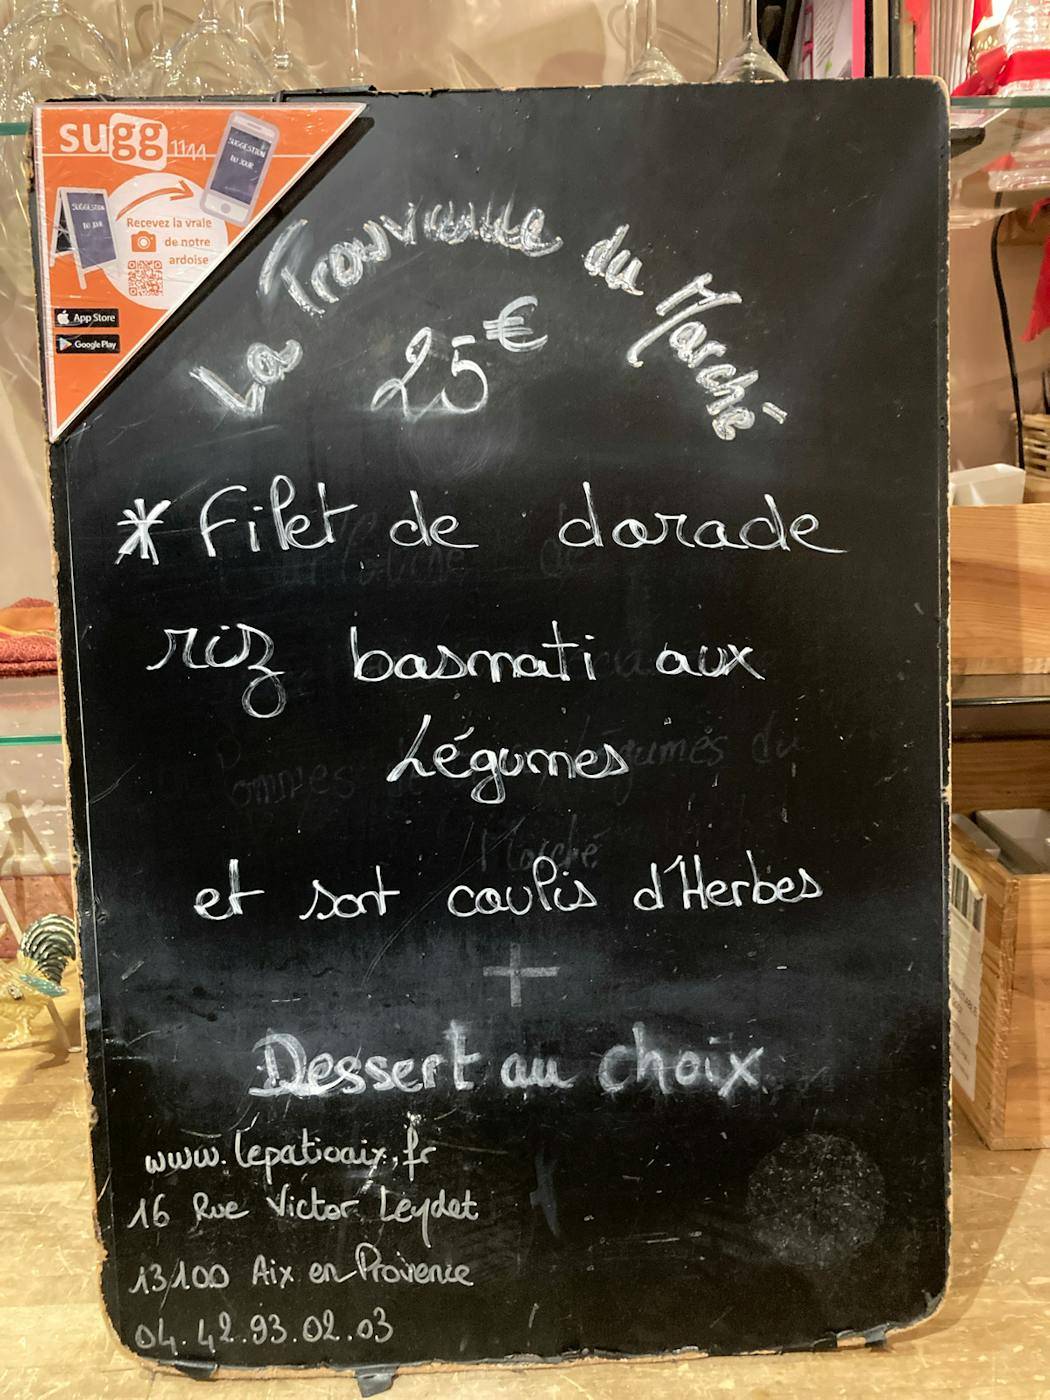 sugg 1144
SUGGESTION
DU JOUR
SUGGESTION
DU JOUR
Recevez la vraie
de notre
ardoise
App Store
Google Play
La Trouvaille du Marché
25€
* Filet de dorade
riz basmati aux
Légumes
et son coulis d'Herbes
+
Dessert au choix
www.lepatioaix.fr
16 Rue Victor Leydet
13100 Aix en Provence
04.42.93.02.03